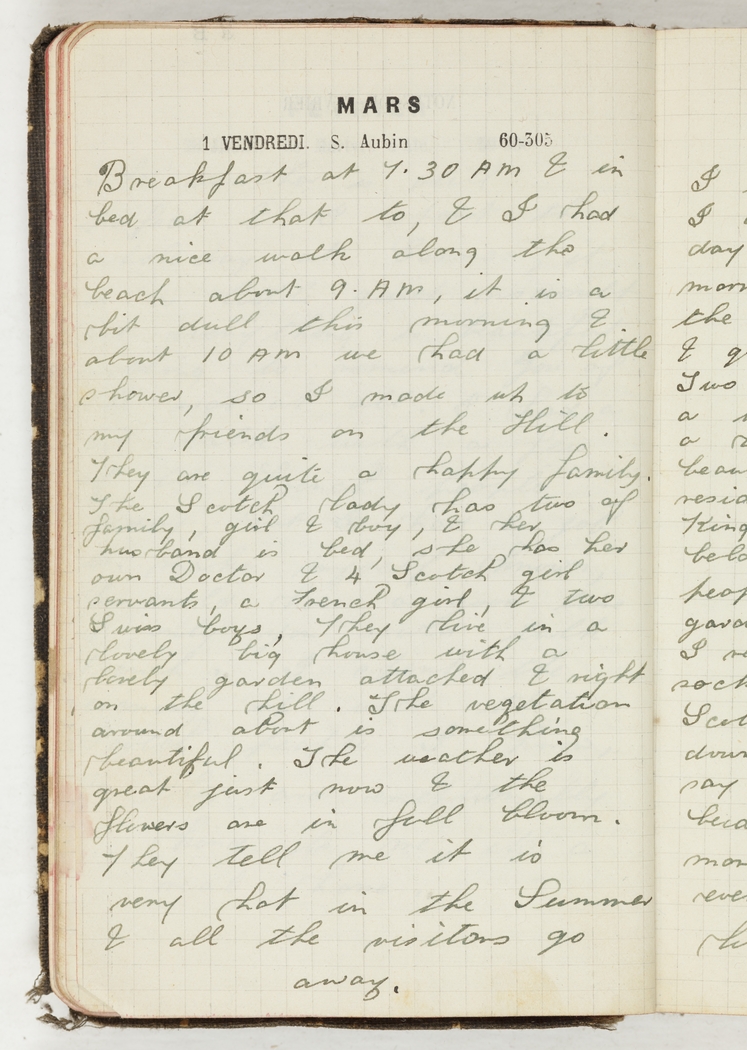 MARS
1 VENDREDI. S. Aubin 60-305
Breakfast at 7.30 AM & in
bed at that to, & I had
a nice walk along the
beach about 9. AM, it is a
bit dull this morning &
about 10 AM we had a little
shower, so I made up to
my friends on the Hill.
They are quite a happy family.
The Scotch lady has two of
family, girl & boy, & her
husband is bed, she has her
own Doctor & 4 Scotch girl
servants, a French girl, & two
Swiss boys, They live in a
lovely big house with a
lovely garden attached & right
on the hill. The vegetation
around about is something
beautiful. The weather is
great just now & the
flowers are in full bloom.
They tell me it is
very hot in the Summer
& all the visitors go
away.
I
I
day
morn
the
&
Two
a
a
beau
resid
King
belo
peop
gard
I
sock
Scot
down
say
beca
mor
reve